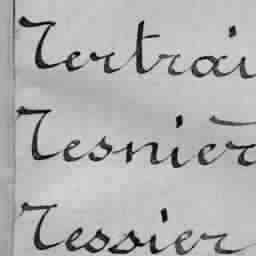 Tertrai
Tesnier
Tessier